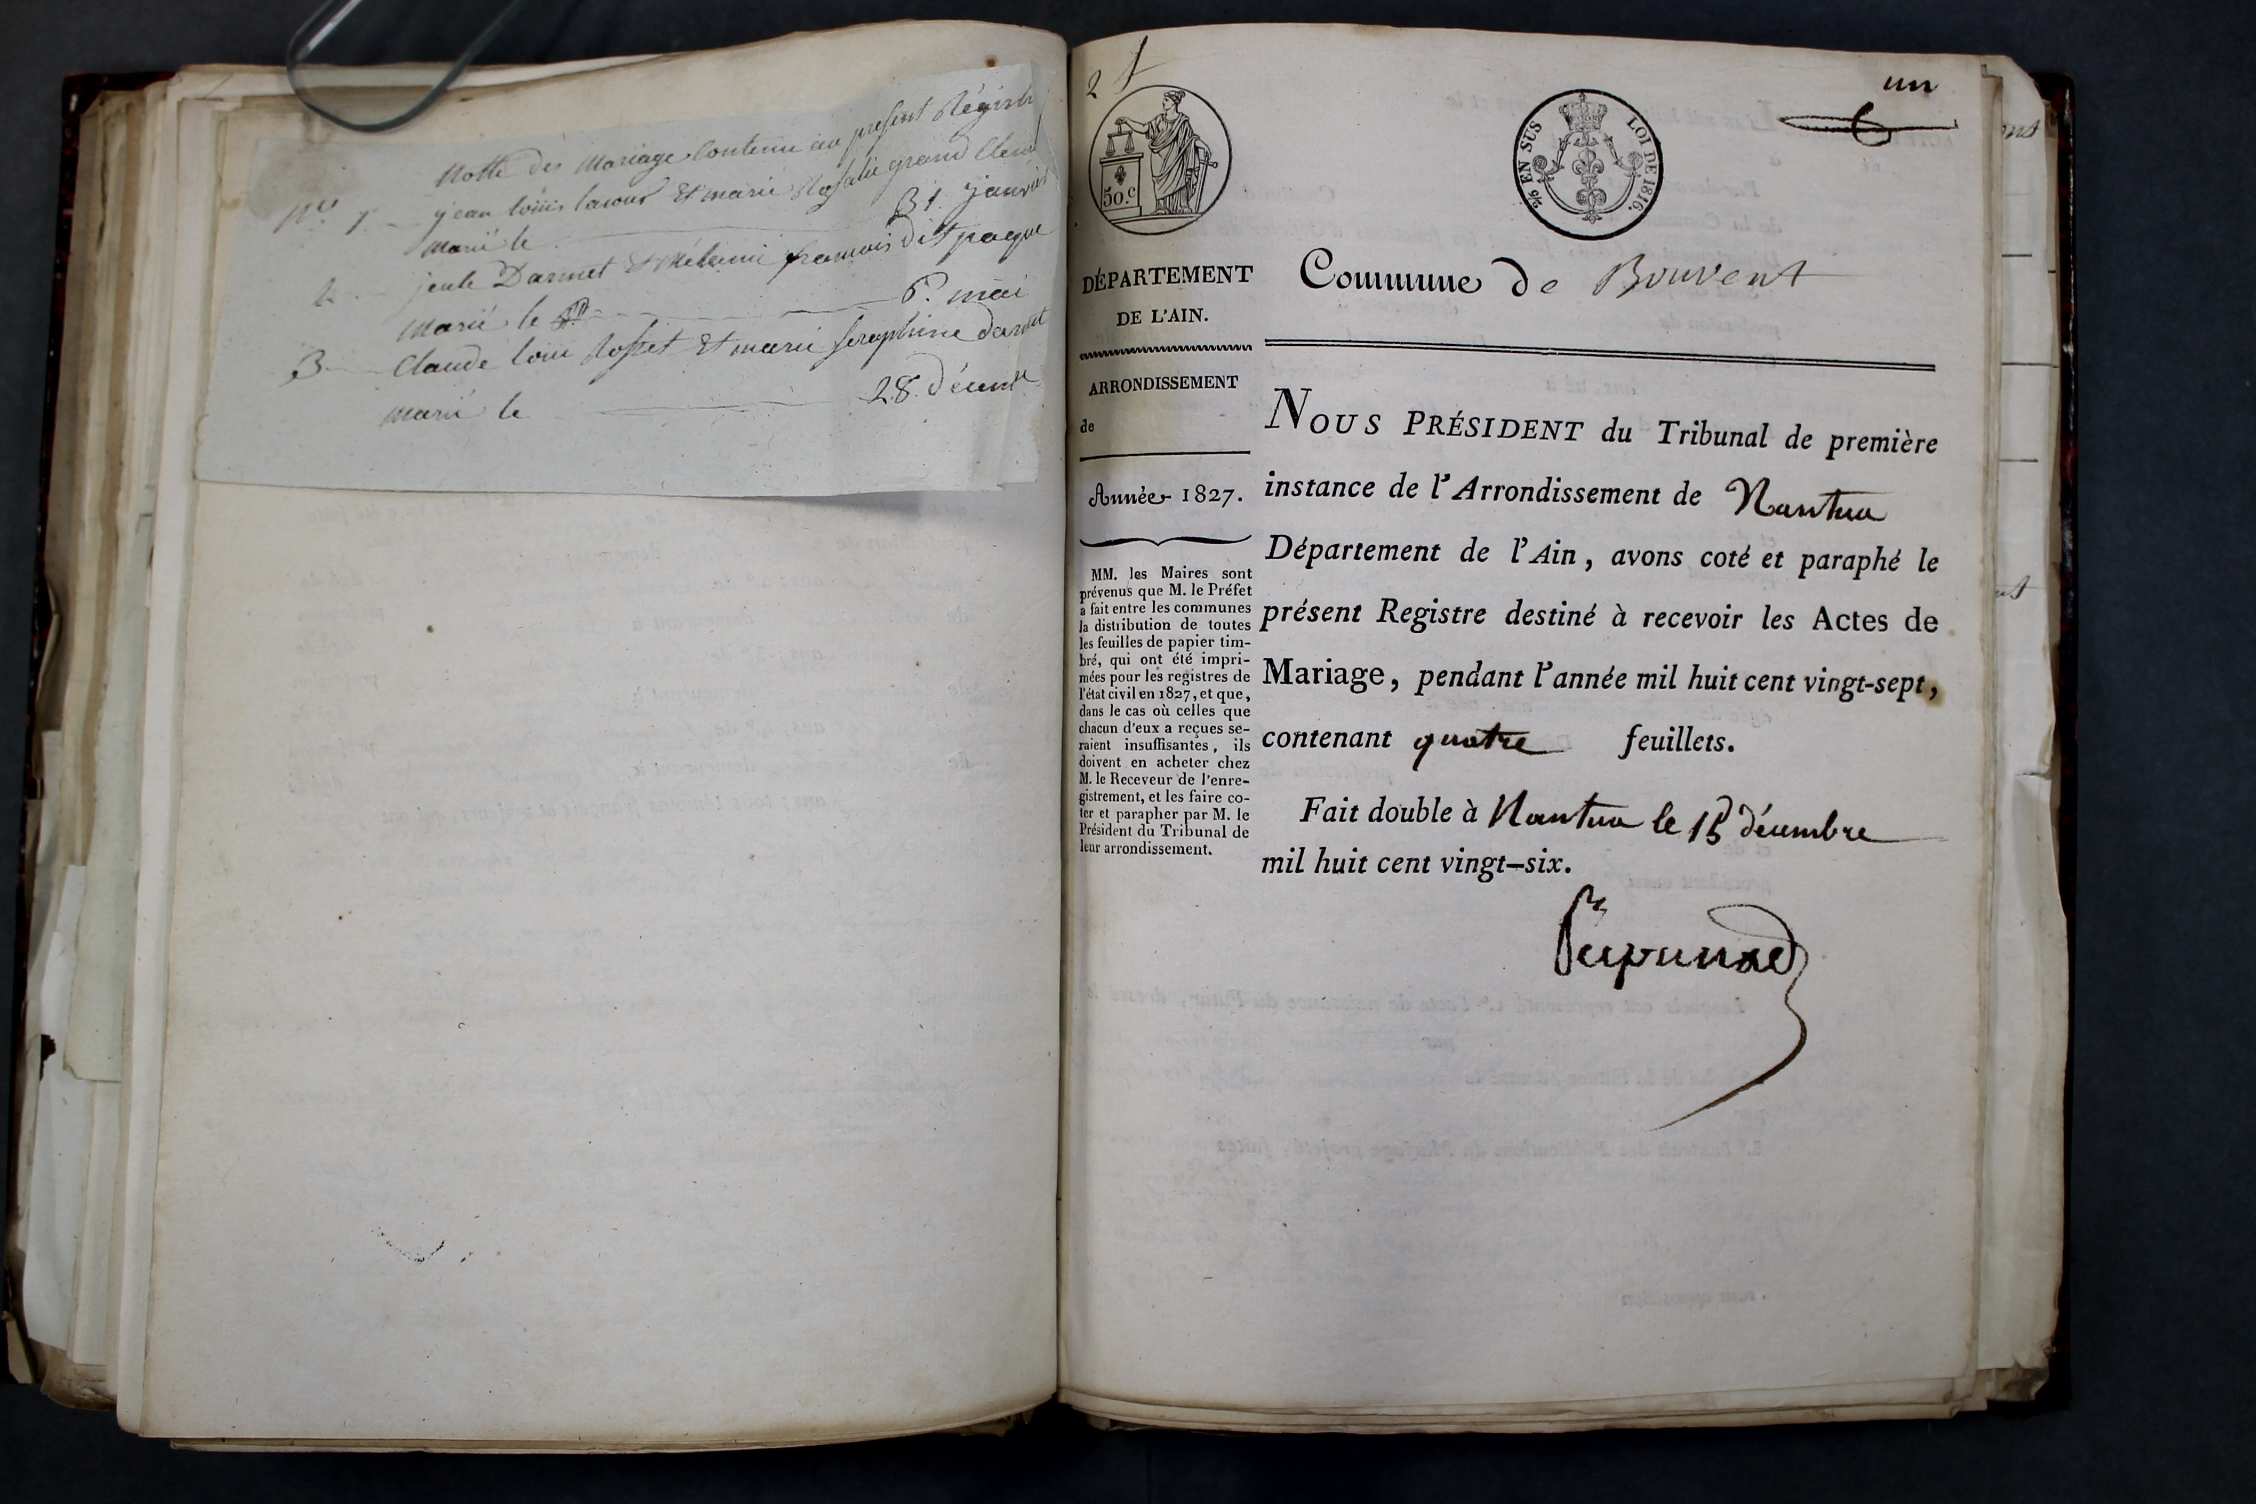 Notte des Mariage Contenu au present Régistre
N.º 1. jean louis lacour et marie Rosalie grand Clem
marié le 31. janvier
2 Darmet et Mélanie francois dit paque
marié le 6. mai
3 Claude louis Rosset et marie seraphine darmet
marié le 28. décembre
2
un
50.c
2/5 EN SUS LOI DE 1816.
DÉPARTEMENT
DE L'AIN.
ARRONDISSEMENT
de
Année 1827.
MM. les Maires sont
prévenus que M. le Préfet
a fait entre les communes
la distribution de toutes
les feuilles de papier tim-
bré, qui ont été impri-
mées pour les registres de
l'état civil en 1827, et que,
dans le cas où celles que
chacun d'eux a reçues se-
raient insuffisantes, ils
doivent en acheter chez
M. le Receveur de l'enre-
gistrement, et les faire co-
ter et parapher par M. le
Président du Tribunal de
leur arrondissement.
Commune de Bouvent
NOUS PRÉSIDENT du Tribunal de première
instance de l'Arrondissement de Nantua
Département de l'Ain, avons coté et paraphé le
présent Registre destiné à recevoir les Actes de
Mariage, pendant l'année mil huit cent vingt-sept,
contenant quatre feuillets.
Fait double à Nantua le 15 décembre
mil huit cent vingt-six.